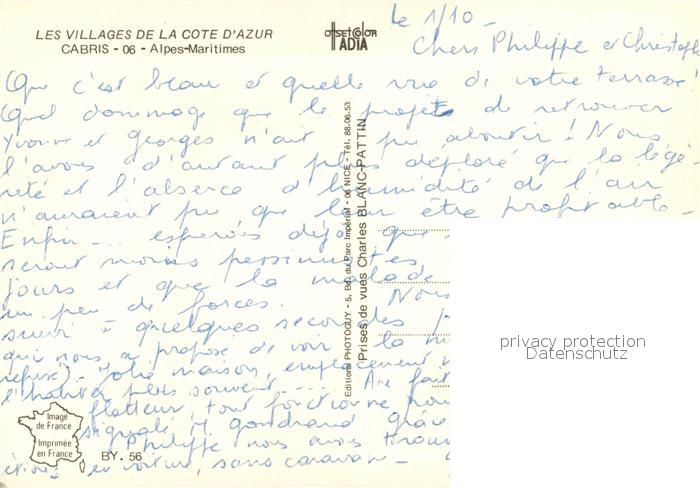 LES VILLAGES DE LA COTE D'AZUR
CABRIS - 06 - Alpes-Maritimes
OffsetColor
TADIA
le 1/10 -
Chers Philippe et Christophe
Que c'est beau et quelle vue de votre terrasse
Quel dommage que le projet de retrouver
Yvonne et Georges n'ait pu aboutir ! Nous
l'avons d'autant plus déploré que la légè
reté et l'absence d'humidité de l'air
n'auraient pu que leur être profitable -
Enfin... espérons déjà que
seront moins pessimistes
jours et que la malade
un peu de forces. Nous
suivi - quelques secondes
qui nous a proposé de voir la
refusé) - Jolie maison, emplacement
l'habiter plus souvent ....
flatteur, tout fonctionne
signalé M. gondrand grâce
Philippe nous avons trouvé
étions en voiture, sans caravane -
Editions PHOTOGUY - 5, Bd du Parc Impérial - 06 NICE - Tel. 88-06-53
Prises de vues Charles BLANC-PATTIN
privacy protection
Datenschutz
Image
de France
Imprimée
en France
BY. 56